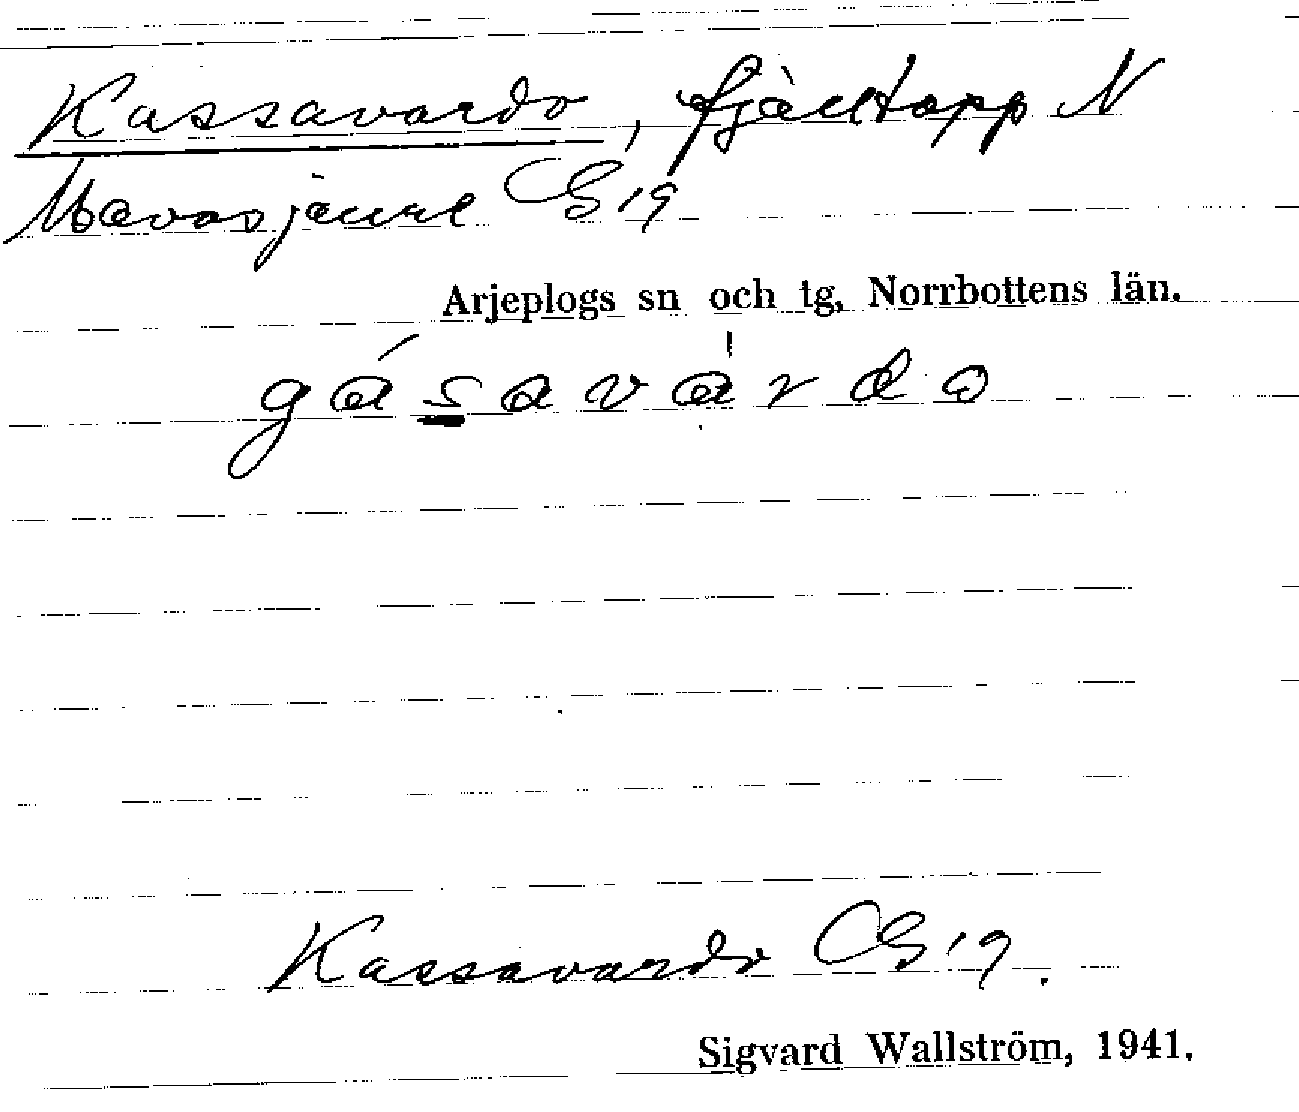 Kassavardo, fjälltopp N
Mavasjaure GS 19
Arjeplogs sn och tg, Norrbottens län.
gásavárdo
Kassavardo GS 19.
Sigvard Wallström, 1941.